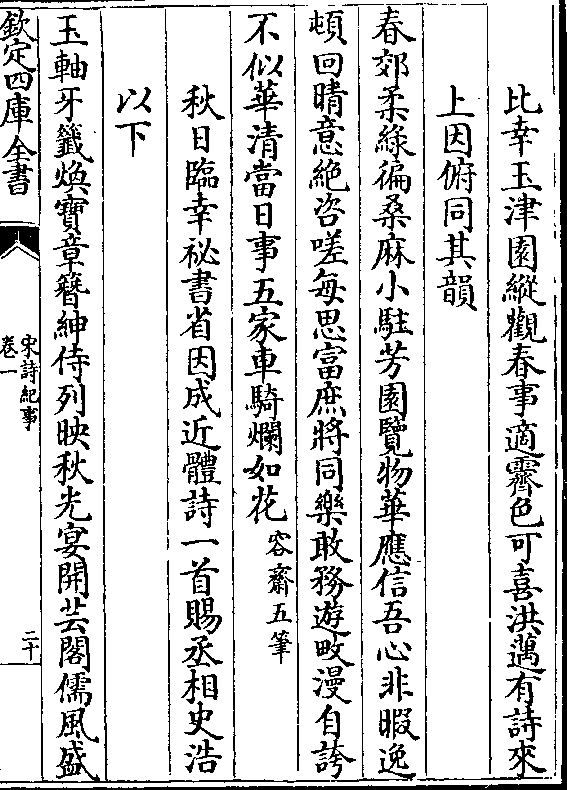 比幸玉津園縱觀春事適霽色可喜洪邁有詩來
上因俯同其韻
春郊柔綠徧桑麻小駐芳園覽物華應信吾心非暇逸
頓回晴意絶咨嗟每思富庶將同樂敢務遊畋漫自誇
不似華清當日事五家車騎爛如花容齋五筆
秋日臨幸祕書省因成近體詩一首賜丞相史浩
以下
玉軸牙籤煥寶章簪紳侍列映秋光宴開芸閣儒風盛
欽定四庫全書
宋詩紀事
卷一
二十